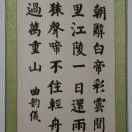 朝辭白帝彩雲間千
里江陵一日還兩岸
猿聲啼不住輕舟已
過萬重山 曲韵儀